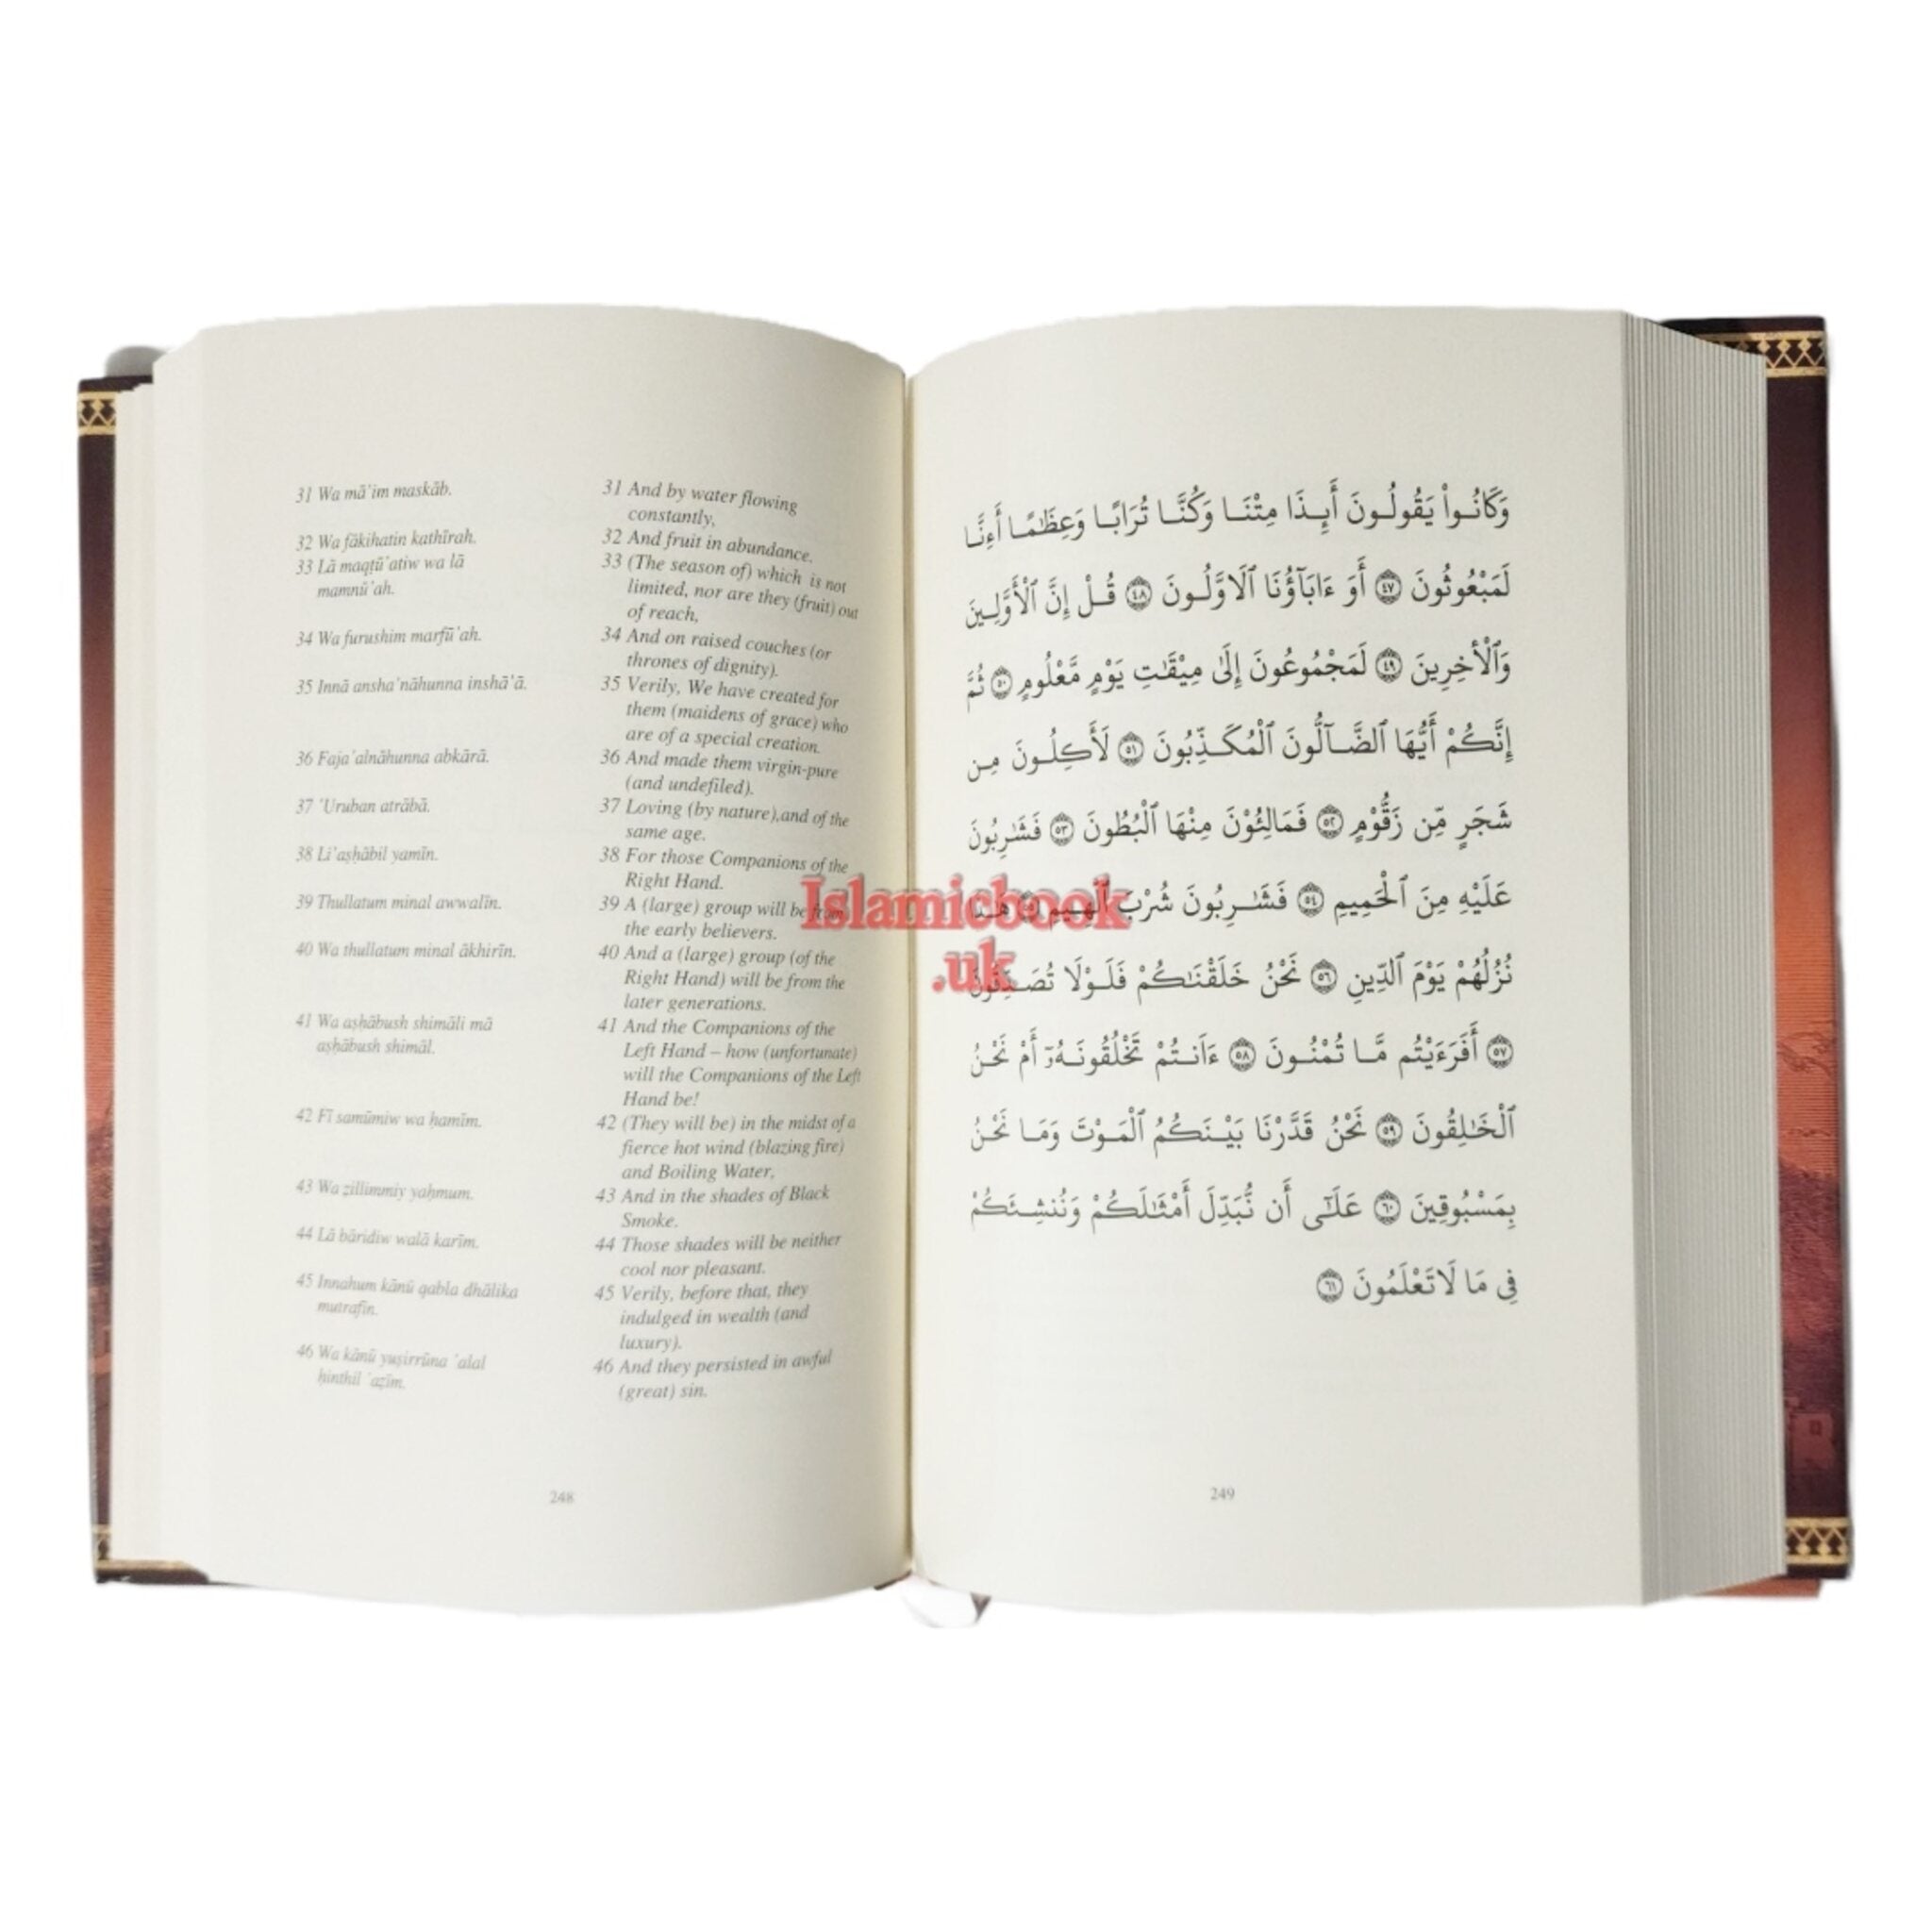 31 Wa mā'im maskāb.
32 Wa fākihatin kathīrah.
33 Lā maqṭū'atiw wa lā
mamnū'ah.
34 Wa furushim marfū'ah.
35 Innā ansha'nāhunna inshā'ā.
36 Faja'alnāhunna abkārā.
37 'Uruban atrābā.
38 Li'aṣḥābil yamīn.
39 Thullatum minal awwalīn.
40 Wa thullatum minal ākhirīn.
41 Wa aṣḥābush shimāli mā
aṣḥābush shimāl.
42 Fī samūmiw wa ḥamīm.
43 Wa ẓillimmiy yaḥmum.
44 Lā bāridiw walā karīm.
45 Innahum kānū qabla dhālika
mutrafīn.
46 Wa kānū yuṣirrūna 'alal
ḥinthil 'aẓīm.
31 And by water flowing
constantly,
32 And fruit in abundance.
33 (The season of) which is not
limited, nor are they (fruit) out
of reach,
34 And on raised couches (or
thrones of dignity).
35 Verily, We have created for
them (maidens of grace) who
are of a special creation.
36 And made them virgin-pure
(and undefiled).
37 Loving (by nature),and of the
same age.
38 For those Companions of the
Right Hand.
39 A (large) group will be from
the early believers.
40 And a (large) group (of the
Right Hand) will be from the
later generations.
41 And the Companions of the
Left Hand – how (unfortunate)
will the Companions of the Left
Hand be!
42 (They will be) in the midst of a
fierce hot wind (blazing fire)
and Boiling Water,
43 And in the shades of Black
Smoke.
44 Those shades will be neither
cool nor pleasant.
45 Verily, before that, they
indulged in wealth (and
luxury).
46 And they persisted in awful
(great) sin.
248
وَكَانُوا۟ يَقُولُونَ أَىِٕذَا مِتْنَا وَكُنَّا تُرَابًا وَعِظَٰمًا أَءِنَّا
لَمَبْعُوثُونَ ٤٧ أَوَ ءَابَآؤُنَا ٱلْأَوَّلُونَ ٤٨ قُلْ إِنَّ ٱلْأَوَّلِينَ
وَٱلْأَخِرِينَ ٤٩ لَمَجْمُوعُونَ إِلَىٰ مِيقَٰتِ يَوْمٍ مَّعْلُومٍ ٥٠ ثُمَّ
إِنَّكُمْ أَيُّهَا ٱلضَّآلُّونَ ٱلْمُكَذِّبُونَ ٥١ لَأَكِلُونَ مِن
شَجَرٍ مِّن زَقُّومٍ ٥٢ فَمَالِـُٔونَ مِنْهَا ٱلْبُطُونَ ٥٣ فَشَٰرِبُونَ
عَلَيْهِ مِنَ ٱلْحَمِيمِ ٥٤ فَشَٰرِبُونَ شُرْبَ ٱلْهِيمِ ٥٥ هَٰذَا
نُزُلُهُمْ يَوْمَ ٱلدِّينِ ٥٦ نَحْنُ خَلَقْنَٰكُمْ فَلَوْلَا تُصَدِّقُونَ
٥٧ أَفَرَءَيْتُم مَّا تُمْنُونَ ٥٨ ءَأَنتُمْ تَخْلُقُونَهُۥٓ أَمْ نَحْنُ
ٱلْخَٰلِقُونَ ٥٩ نَحْنُ قَدَّرْنَا بَيْنَكُمُ ٱلْمَوْتَ وَمَا نَحْنُ
بِمَسْبُوقِينَ ٦٠ عَلَىٰٓ أَن نُّبَدِّلَ أَمْثَٰلَكُمْ وَنُنشِئَكُمْ
فِى مَا لَا تَعْلَمُونَ ٦١
249
Islamicbook
.uk